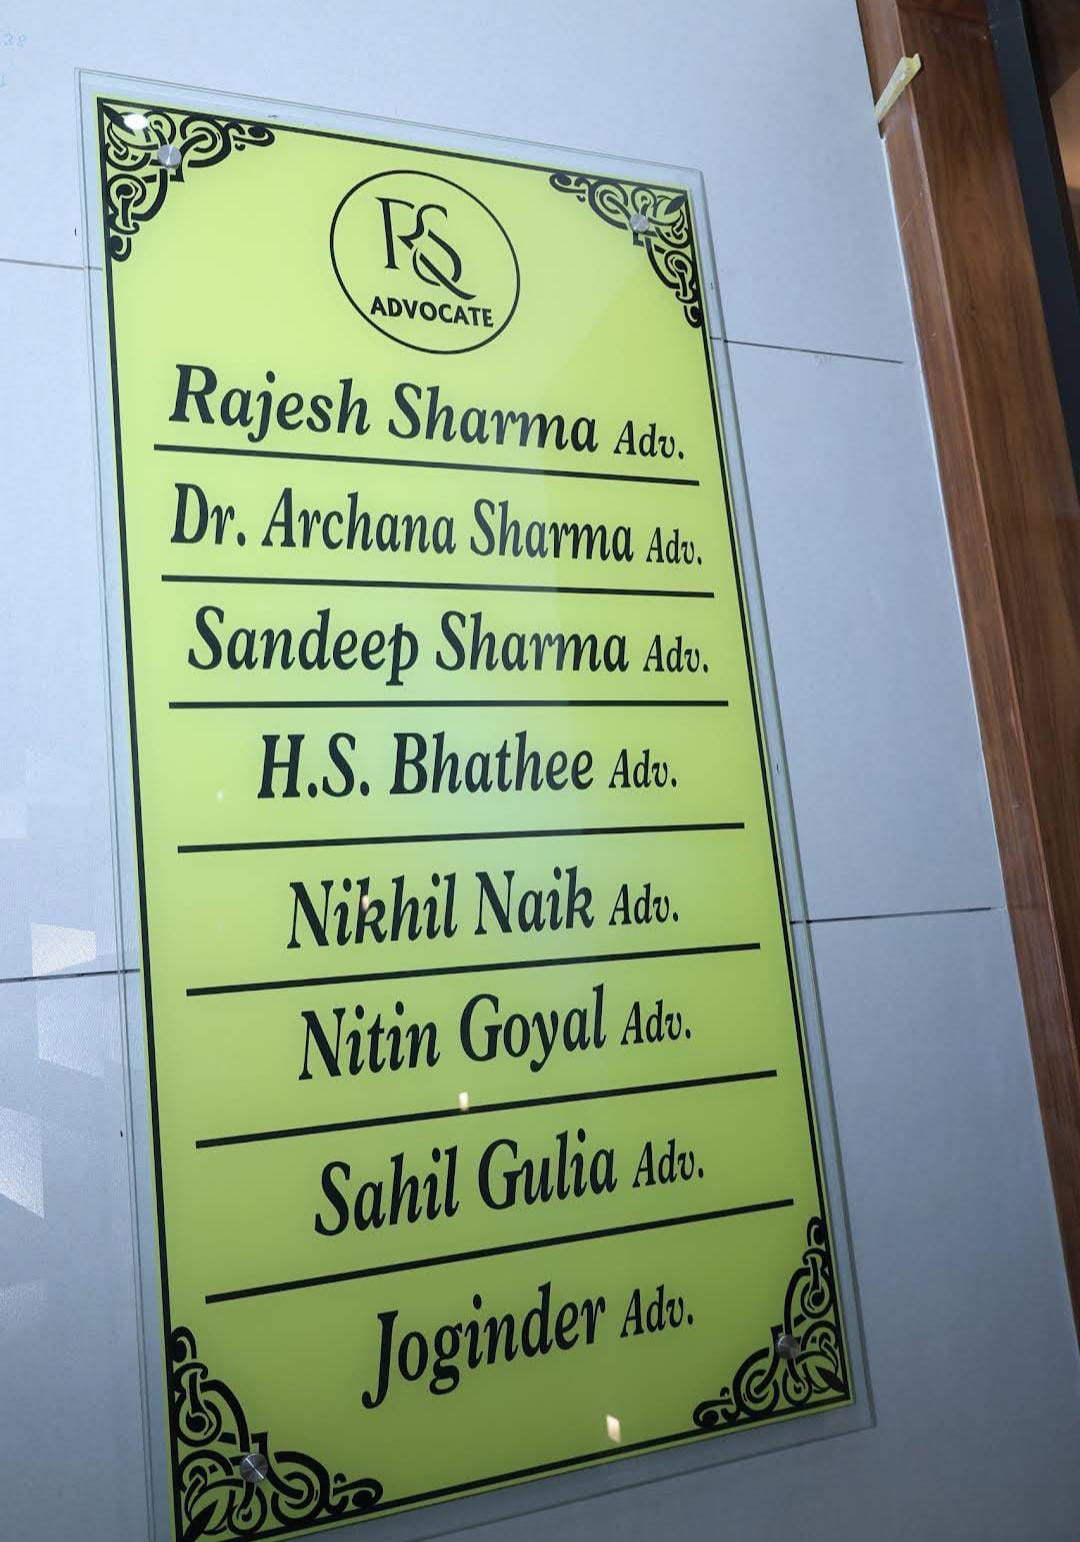 RS
ADVOCATE
Rajesh Sharma Adv.
Dr. Archana Sharma Adv.
Sandeep Sharma Adv.
H.S. Bhathee Adv.
Nikhil Naik Adv.
Nitin Goyal Adv.
Sahil Gulia Adv.
Joginder Adv.